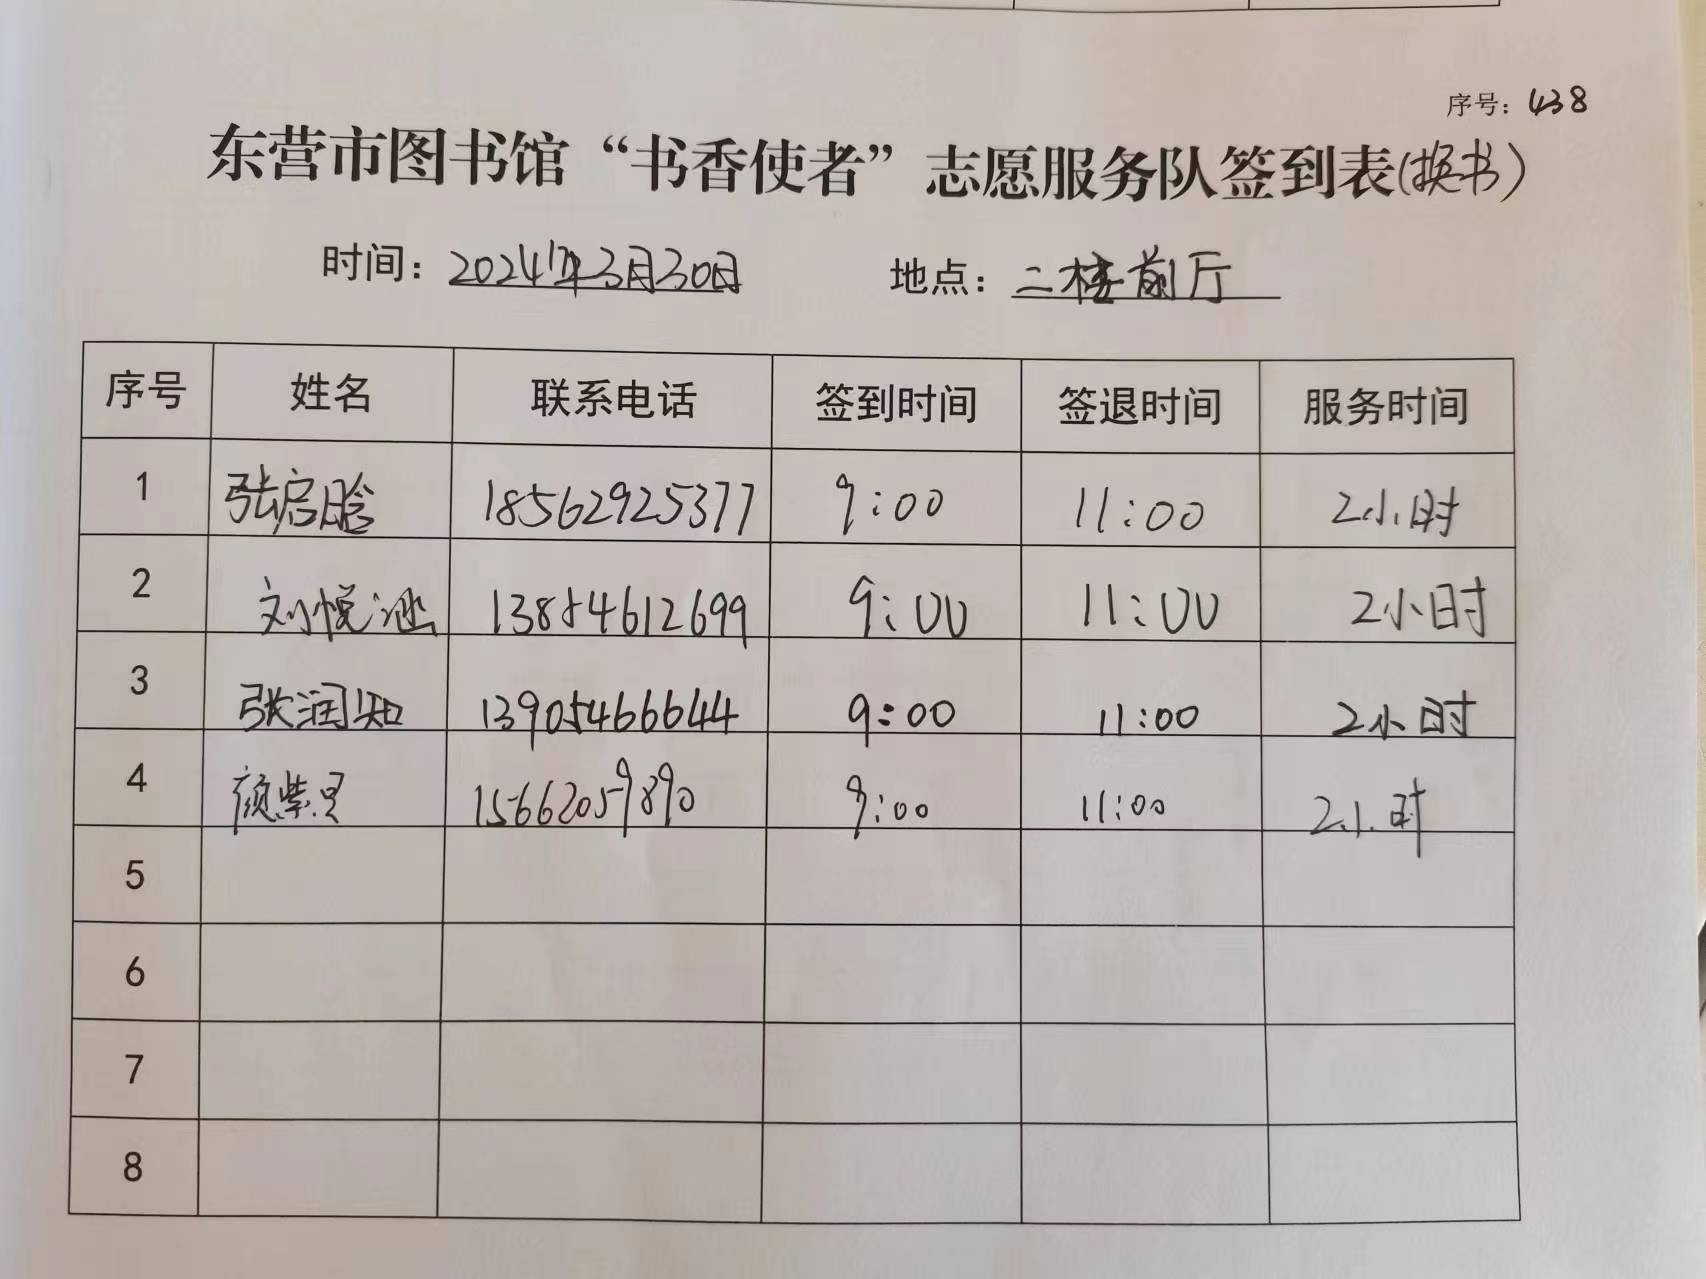 序号：438
东营市图书馆“书香使者”志愿服务队签到表（换书）
时间：2024年3月30日 地点：二楼前厅
序号 姓名 联系电话 签到时间 签退时间 服务时间
1 张启晗 18562925377 9:00 11:00 2小时
2 刘悦涵 13854612699 9:00 11:00 2小时
3 张润知 13905466644 9:00 11:00 2小时
4 颜紫昱 15662059890 9:00 11:00 2小时
5
6
7
8